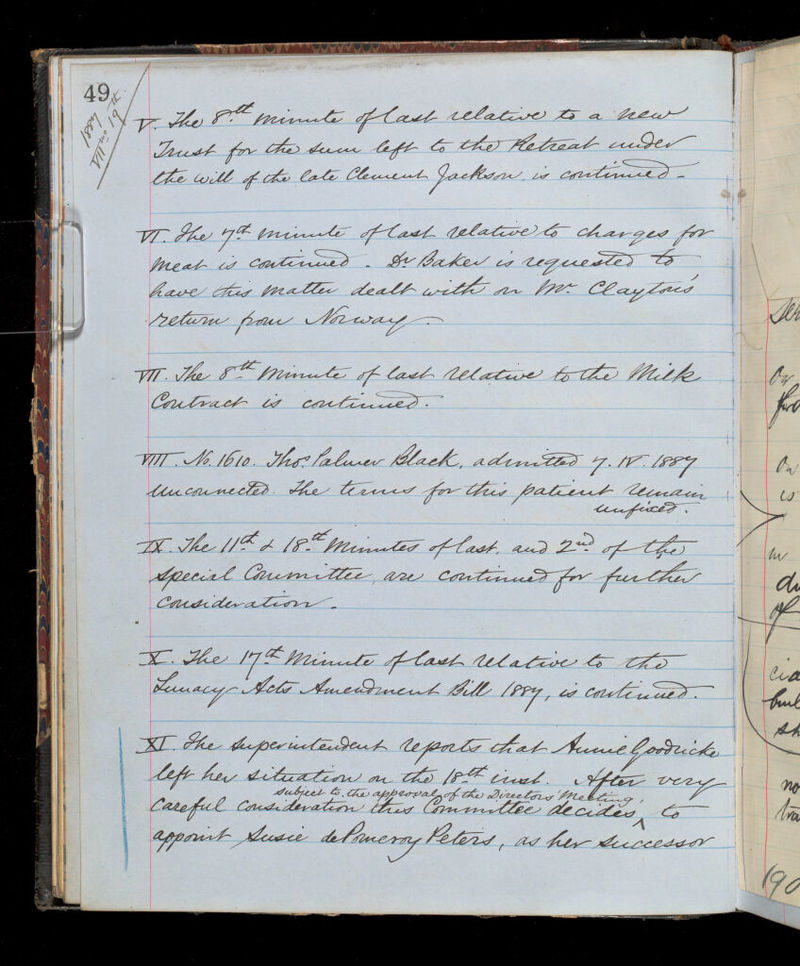 49
1887
VIImo 19th
V. The 8th Minute of last relative to a new
Trust for the sum left to the Retreat under
the will of the late Clement Jackson, is continued -
VI. The 7th Minute of last relative to charges for
Meat is continued. Dr Baker is requested to
have this matter dealt with on Mr. Clayton's
return from Norway -
VII. The 8th Minute of last relative to the Milk
Contract is continued -
VIII. No. 1610. Thos. Palmer Black, admitted 7. IV. 1887
unconnected. The terms for this patient remain
unfixed.
IX. The 11th & 18th Minutes of last, and 2nd of the
Special Committee, are continued for further
consideration -
X. The 17th Minute of last relative to the
Lunacy Acts Amendment Bill 1887, is continued.
XI. The Superintendent reports that Annie Goodricke
left her situation on the 18th inst. After very
subject to the approval of the Directors Meeting,
careful consideration this Committee decides ^ to
appoint Susie de Pomeroy Peters, as her successor